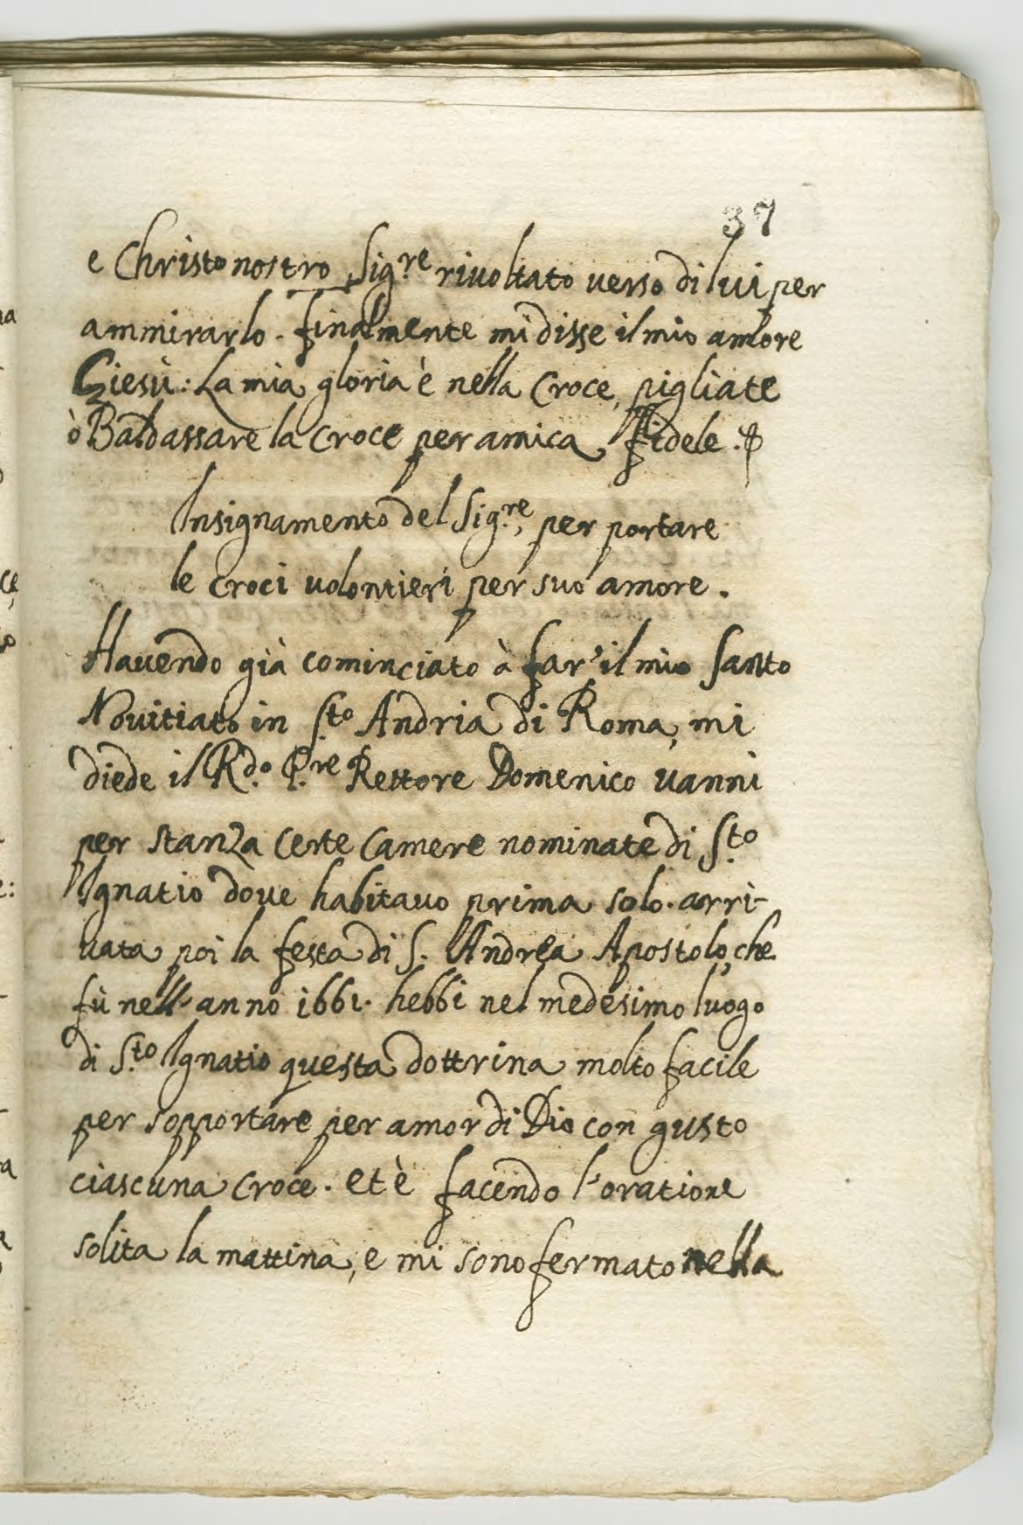 37
e Christo nostro Sig.re rivoltato verso di lui per
ammirarlo. finalmente mi disse il mio amore
Giesù: La mia gloria è nella Croce, pigliate
ò Baldassare la Croce per amica fidele.
Insignamento del Sig.re, per portare
le Croci volontieri per suo amore.
Havendo già cominciato à far' il mio Santo
Novitiato in S.to Andria di Roma, mi
diede il R.do P.re Rettore Domenico Vanni
per stanza certe Camere nominate di S.to
Ignatio dove habitavo prima solo. arri-
vata poi la festa di S. Andrea Apostolo, che
fù nell'anno 1661. hebbi nel medesimo luogo
di S.to Ignatio questa dottrina molto facile
per sopportare per amor di Dio con gusto
ciascuna Croce. et è facendo l'oratione
solita la mattina, e mi sono fermato nella